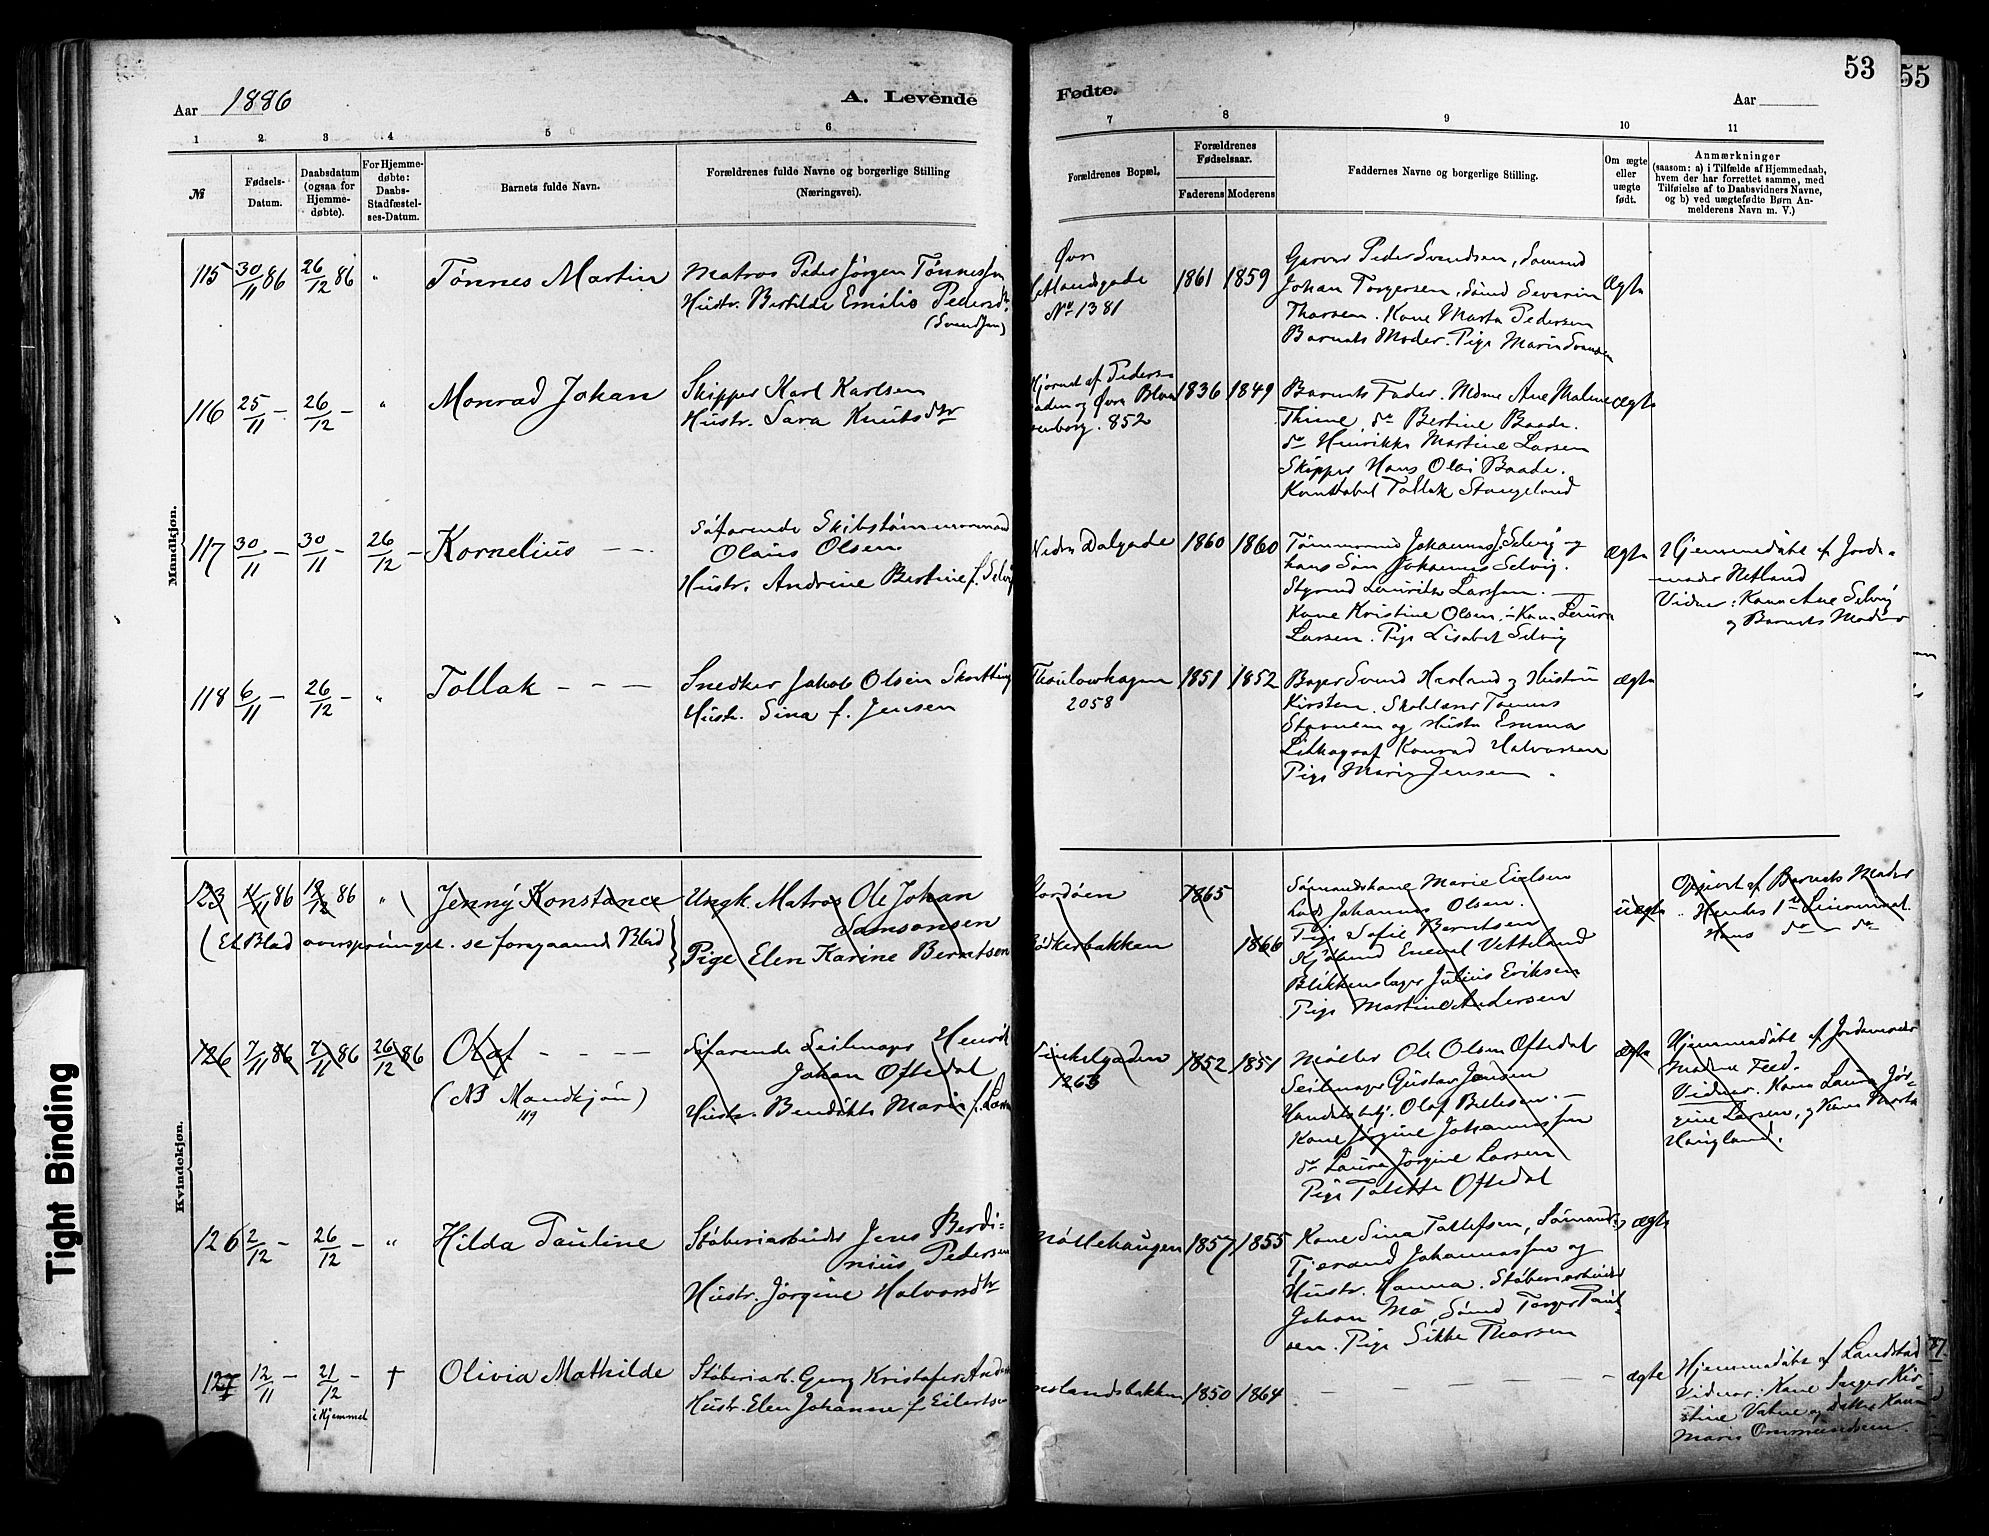 53
55
Aar 1886
A. Levende
Fødte.
Aar
1 2 3 4 5 6 7 8 9 10 11
№
Fødsels-Datum.
Daabsdatum (ogsaa for Hjemmedøbte).
For Hjemmedøbte: Daabs-Stadfæstelses-Datum.
Barnets fulde Navn.
Forældrenes fulde Navne og borgerlige Stilling
(Næringsvei).
Forældrenes Bopæl.
Forældrenes Fødselsaar.
Faderens Moderens
Faddernes Navne og borgerlige Stilling.
Om ægte eller uægte født.
Anmærkninger
(saasom: a) i Tilfælde af Hjemmedaab,
hvem der har forrettet samme, med
Tilføielse af to Daabsvidners Navne,
og b) ved uægtefødte Børn An-
melderens Navn m. V.)
Mandkjøn.
115 30/11 86 26/12 86 " Tønnes Martin
Matros Peder Jørgen Tønnessen
Hustr. Bertilde Emilie Pedersdtr.
(Svendsen)
Øvr
No 1381
1861 1859
Garver Peder Svendsen, Sømand
Johan Torgersen, Sømd Severin
Thorsen. Kone Marta Pedersen
Barnets Moder. Pige Marie Svensen
Ægte
116 25/11 - 26/12 - " Monrad Johan
Skipper Karl Karlsen
Hustr. Sara Knutsdtr
Hjørnet af Peders-
aden og Øvr Blaa
enborg. 852
1836 1849
Barnets Fader. Mdme Ane Malene
Thime, do Bertine Baade.
do Henrikke Martine Larsen
Skipper Hans Olai Baade.
Konstabel Tollak Stangeland
ægte
117 30/11 - 30/11 - 26/12 - Kornelius - - -
Søfarende Skibstømmermand
Olaus Olsen
Hustr. Andrine Bertine f. Selvig
Nedr Dalgade
1860 1860
Tømmermd Johannes J. Selvig og
hans Søn Johannes Selvig.
Styrmd Lauritz Larssen. -
Kone Kristine Olsen. - Kone Laura
Larsen. Pige Lisabet Selvig
ægte
Hjemmedøbt af Jorde-
moder Hetland
Vidner: Kone Ane Selvig
og Barnets Moder
118 6/11 - 26/12 - " Tollak - - -
Snedker Jakob Olsen
Hustr. Sina f. Jensen
Thoulowhagen
2058
1851 1852
Bager Svend Harland og Hustru
Kirsten. Skolelærer Tønnes
Stornem og Hustr Emma
Lithograf Konrad Halvorsen
Pige Marie Jensen.
ægte
Kvindekjøn.
123 11/11 86 19/12 86 " Jenny Konstance
(Et Blad oversprunget. se foregaaende Blad)
Ungk. Matros Ole Johan
Samsonsen
Pige Elen Karine Berntsen
Bødkerbakken
1865
1866
Sømandskone Marie Eielsen
Lods Johannes Olsen.
Pige Sofie Berntsen
Kjøbmd Enevel Vetteland
Blikkenslager Julius Eriksen
Pige Martine Andersen
uægte
Opgivet af Barnets Moder
Hendes 1ste Leiermaal.
Hans do - do
126 7/11 86 7/11 86 26/12 86 Olaf - - - -
(NB Mandkjøn)
119
Søfarende Seilmager Henrik
Johan Oftedal
Hustr. Bendikte Marie f. Larsen
Vinkelgaden
1263
1852 1851
Møller Ole Olsen Oftedal
Seilmager Gustav Jensen
Handelsbetj. Olaf Bellesen. -
Kone Jørgine Johannessen
do Laura Jørgine Larsen
Pige Talette Oftedal
ægte
Hjemmedøbt af Jordemoder
Madme Feed.
Vidner. Kone Laura Jør-
gine Larsen, og Kone Marta
Haugland.
126 2/12 - 26/12 - " Hilda Pauline
Støberiarbeider Jens Berdi-
nius Pedersen
Hustr. Jørgine Halvorsdtr
Møllehaugen
1857 1855
Kone Sina Tollefsen, Sømand
Tjerand Johannessen og
Hustr. Hanna. Støberiarbeider
Johan Mø, Sømd Torger Paul-
sen. Pige Sikke Thorsen
ægte
127 12/11 - 21/12 - † Olivia Mathilde
i Hjemmet
Støberiarb. Georg Kristofer
Hustr. Elen Johanne f. Eilertsen
1850 1864
- - - - - -
ægte
Hjemmedøbt af Landstad
Vidner: Kone Inger Kir-
stine Vatne og Kone
Marie Ommundsen.
Tight Binding